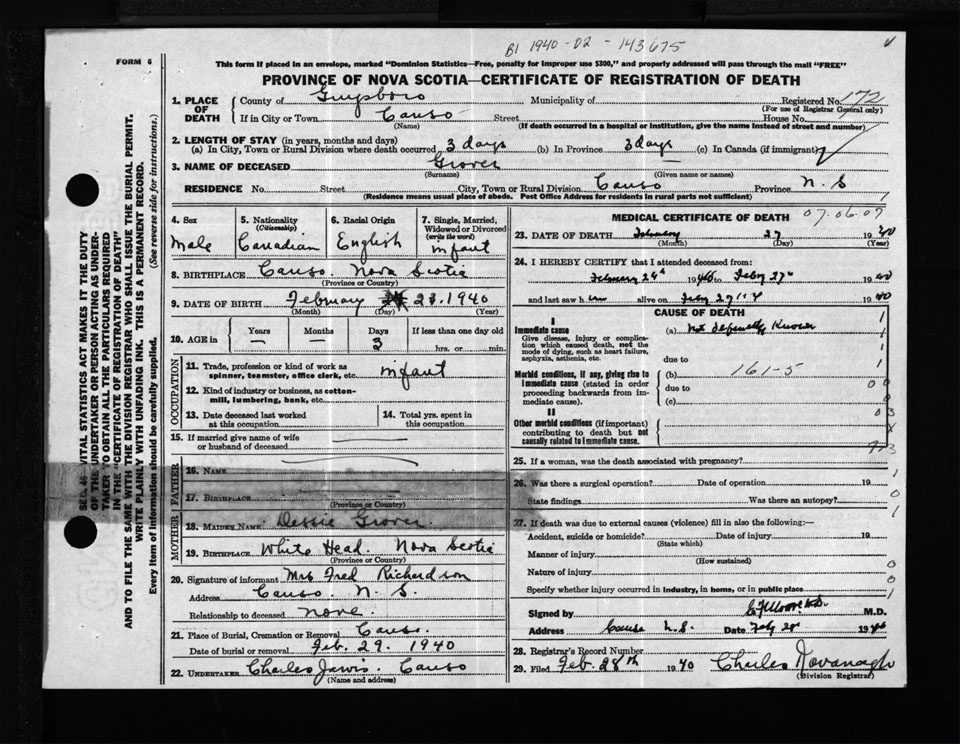 B1 1940-02-143675
FORM 6
This form if placed in an envelope, marked "Dominion Statistics—Free, penalty for improper use $300," and properly addressed will pass through the mail "FREE"
PROVINCE OF NOVA SCOTIA—CERTIFICATE OF REGISTRATION OF DEATH
1. PLACE OF DEATH
County of Guysboro Municipality of Registered No. 172
(For use of Registrar General only)
If in City or Town Canso Street House No.
(Name) (If death occurred in a hospital or institution, give the name instead of street and number)
2. LENGTH OF STAY (in years, months and days)
(a) In City, Town or Rural Division where death occurred 3 days (b) In Province 3 days (c) In Canada (if immigrant)
3. NAME OF DECEASED Grover
(Surname) (Given name or names)
RESIDENCE No. Street City, Town or Rural Division Canso Province N. S
(Residence means usual place of abode. Post Office Address for residents in rural parts not sufficient)
4. Sex 5. Nationality 6. Racial Origin 7. Single, Married, Widowed or Divorced
(Citizenship) (write the word)
Male Canadian English infant
8. BIRTHPLACE Canso. Nova Scotia
(Province or Country)
9. DATE OF BIRTH February 23. 1940
(Month) (Day) (Year)
10. AGE in Years Months Days If less than one day old
— — 3 hrs. or min.
OCCUPATION
11. Trade, profession or kind of work as spinner, teamster, office clerk, etc. infant
12. Kind of industry or business, as cotton-mill, lumbering, bank, etc.
13. Date deceased last worked at this occupation 14. Total yrs. spent in this occupation
15. If married give name of wife or husband of deceased
FATHER
16. Name
17. Birthplace
(Province or Country)
MOTHER
18. Maiden Name Dessie Grover.
19. Birthplace White Head. Nova Scotia
(Province or Country)
20. Signature of informant Mrs Fred Richardson
Address Canso. N. S.
Relationship to deceased none.
21. Place of Burial, Cremation or Removal Canso.
Date of burial or removal Feb. 29. 1940
22. UNDERTAKER Charles Jarvis. Canso
(Name and address)
MEDICAL CERTIFICATE OF DEATH 07.06.07
23. DATE OF DEATH February 27 1940
(Month) (Day) (Year)
24. I HEREBY CERTIFY that I attended deceased from:
February 24th 1940 to Feby 27th 1940
and last saw h im alive on Feby 27th 1940
CAUSE OF DEATH
I
Immediate cause (a) Not definitely Known
Give disease, injury or complication which caused death, not the mode of dying, such as heart failure, asphyxia, asthenia, etc.
due to
Morbid conditions, if any, giving rise to immediate cause (stated in order proceeding backwards from immediate cause).
(b) 161-5
due to
(c)
II
Other morbid conditions (if important) contributing to death but not causally related to immediate cause.
25. If a woman, was the death associated with pregnancy?
26. Was there a surgical operation? Date of operation 19
State findings Was there an autopsy?
27. If death was due to external causes (violence) fill in also the following:—
Accident, suicide or homicide? Date of injury 19
(State which)
Manner of injury
(How sustained)
Nature of injury
Specify whether injury occurred in industry, in home, or in public place
Signed by M.D.
Address Canso N.S. Date Feby 28 1940
28. Registrar's Record Number
29. Filed Feb. 28th 1940 Charles Kavanagh
(Division Registrar)
SEC. 46 VITAL STATISTICS ACT MAKES IT THE DUTY
OF THE UNDERTAKER OR PERSON ACTING AS UNDER-
TAKER TO OBTAIN ALL THE PARTICULARS REQUIRED
IN THE "CERTIFICATE OF REGISTRATION OF DEATH"
AND TO FILE THE SAME WITH THE DIVISION REGISTRAR WHO SHALL ISSUE THE BURIAL PERMIT.
WRITE PLAINLY WITH UNFADING INK. THIS IS A PERMANENT RECORD.
Every item of information should be carefully supplied. (See reverse side for instructions.)